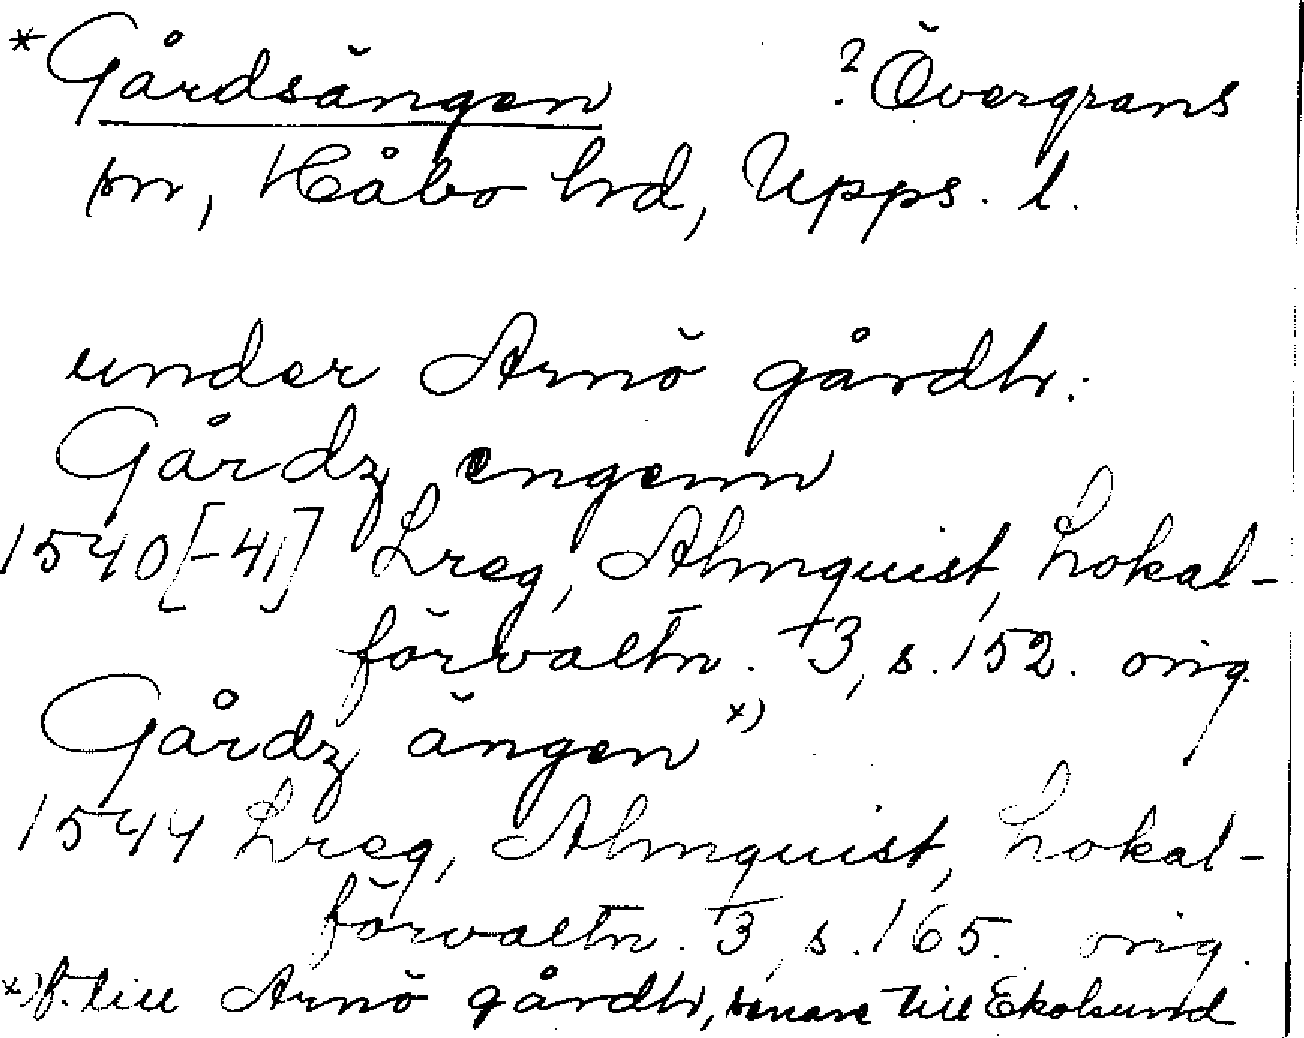 *Gårdsängen ?Övergrans
sn, Håbo hd, Upps. l.
under Arnö gårdh.
Gårdz engenn
1540[-41] Lreg, Almquist, Lokal-
förvaltn. I3, s. 152. orig.
Gårdz ängen x)
1544 Lreg, Almquist, Lokal-
förvaltn. I3, s. 165. orig.
x) f. till Arnö gårdh, senare till Ekolsund